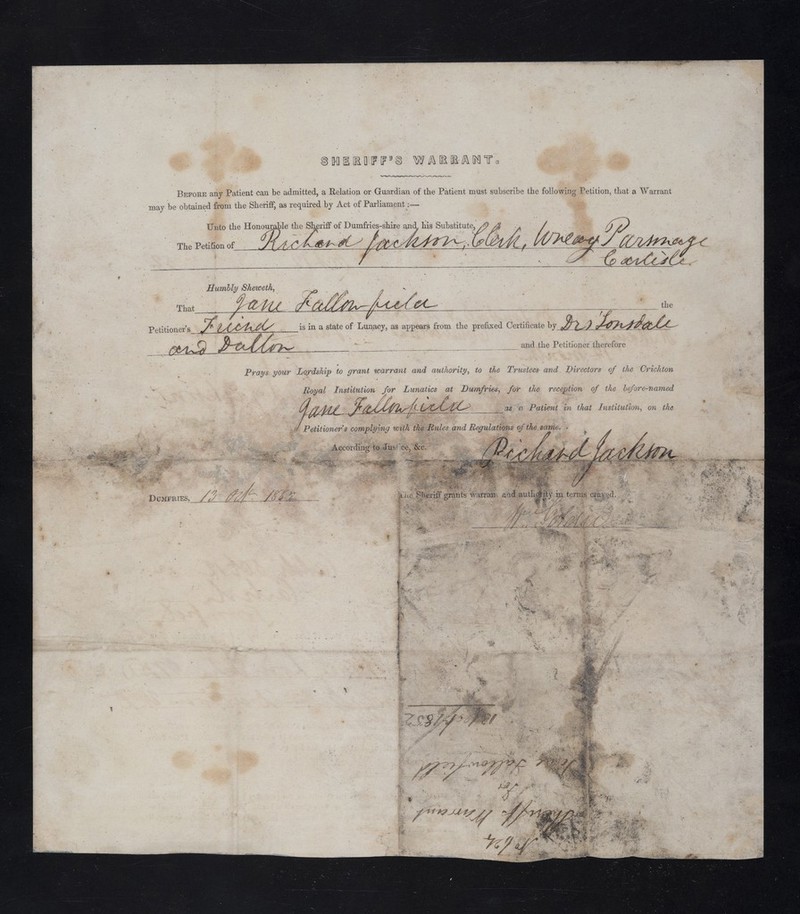 SHERIFF'S WARRANT.
BEFORE any Patient can be admitted, a Relation or Guardian of the Patient must subscribe the following Petition, that a Warrant
may be obtained from the Sheriff, as required by Act of Parliament :—
Unto the Honourable the Sheriff of Dumfries-shire and his Substitute,
The Petition of Richard Jackson, Clerk, Wreay Parsonage
Carlisle
Humbly Sheweth,
That Jane Fallowfield the
Petitioner's Friend is in a state of Lunacy, as appears from the prefixed Certificate by Drs Lonsdale
and Dalton and the Petitioner therefore
Prays your Lordship to grant warrant and authority, to the Trustees and Directors of the Crichton
Royal Institution for Lunatics at Dumfries, for the reception of the before-named
Jane Fallowfield as a Patient in that Institution, on the
Petitioner's complying with the Rules and Regulations of the same.
According to Justice, &c.
Richard Jackson
DUMFRIES. 13 Oct 1852
The Sheriff grants warrant and authority in terms craved.
Wm
No 624
Sheriff's Warrant
for
Jane Fallowfield
1852